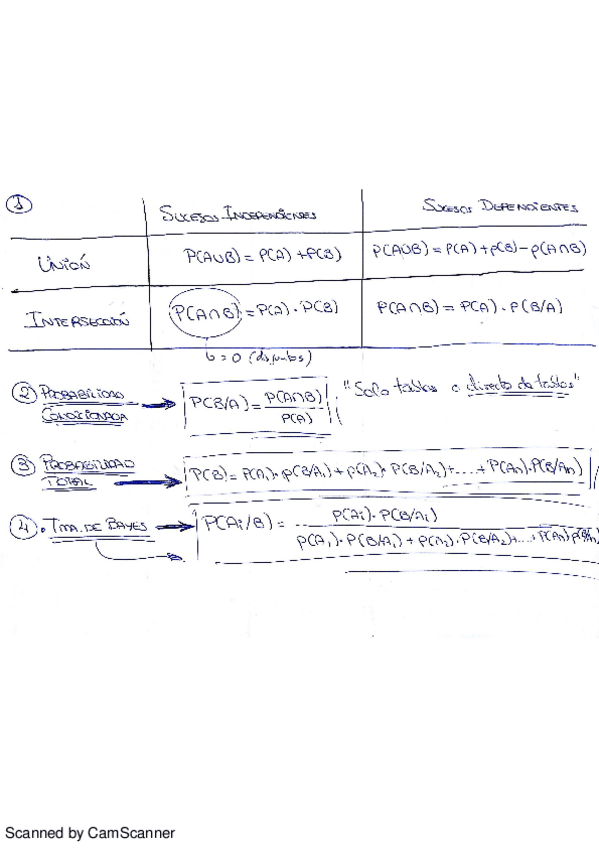 1
SUCESOS INDEPENDIENTES SUCESOS DEPENDIENTES
UNIÓN P(A∪B) = P(A) + P(B) P(A∪B) = P(A) + P(B) - P(A∩B)
INTERSECCIÓN P(A∩B) = P(A) · P(B) P(A∩B) = P(A) · P(B/A)
= 0 (disjuntos)
2 PROBABILIDAD
CONDICIONADA P(B/A) = P(A∩B) / P(A) "Solo tablas o directo de tablas"
3 PROBABILIDAD
TOTAL P(B) = P(A₁) · P(B/A₁) + P(A₂) · P(B/A₂) + .... + P(An) · P(B/An)
4 . TMA. DE BAYES P(Ai/B) = P(Ai) · P(B/Ai) / P(A₁) · P(B/A₁) + P(A₂) · P(B/A₂) + ... + P(An) P(B/An)
Scanned by CamScanner